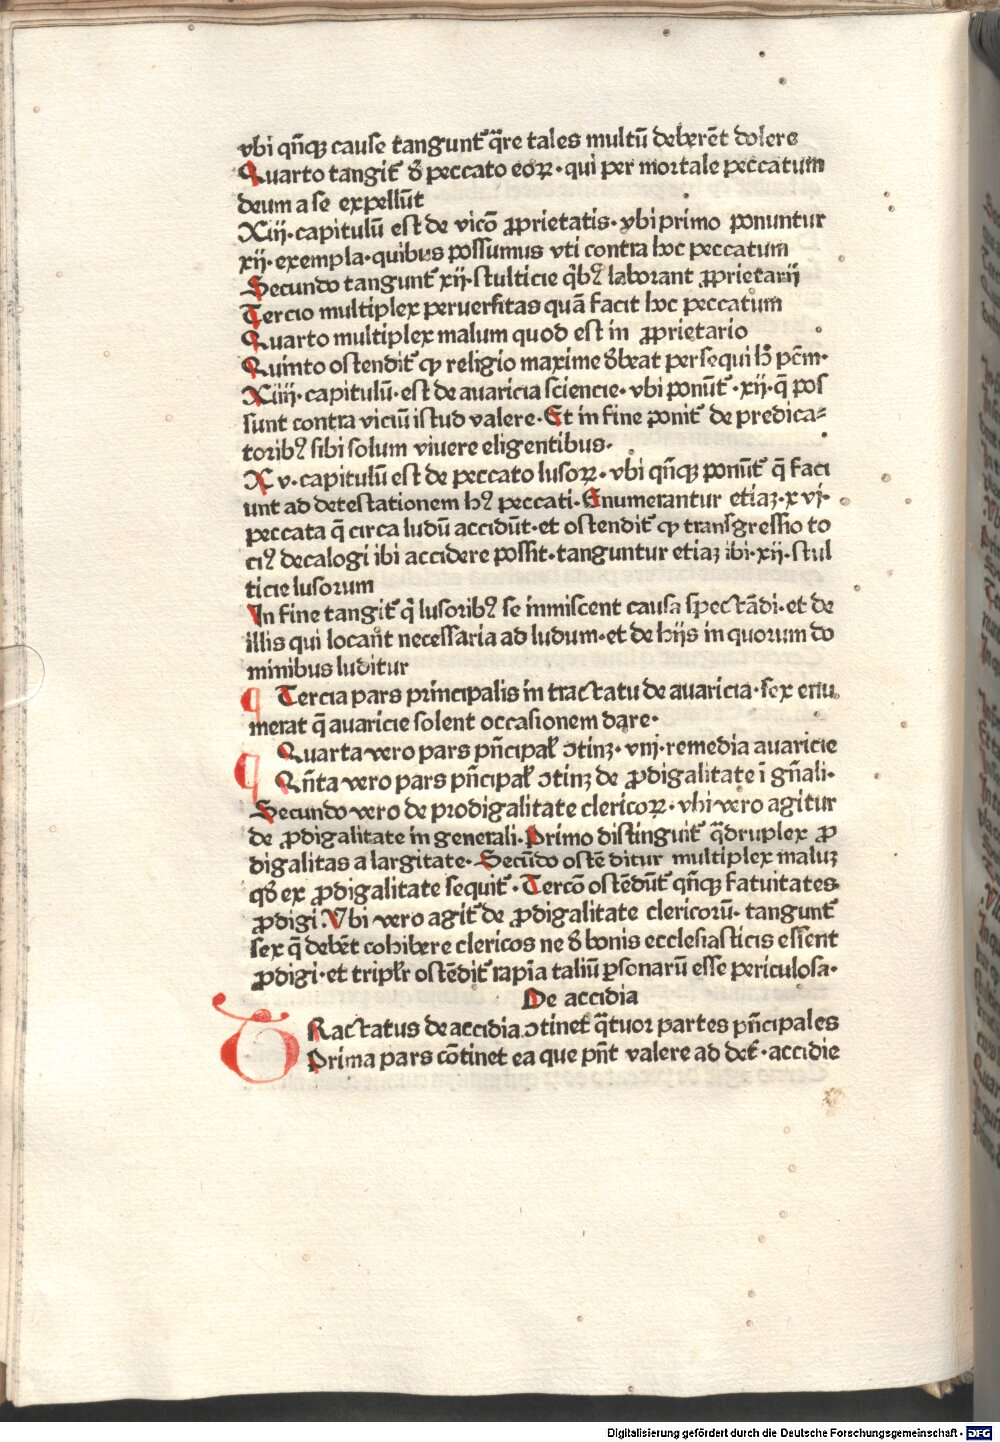 vbi qñqꝫ cause tangunt᷑ q̃re tales multũ deberẽt dolere
Quarto tangit᷑ ð peccato eoꝝ · qui per mortale peccatum
deum a se expellũt
Xiij · capitulũ est de vicõ ꝓprietatis · vbi primo ponuntur
xij · exempla · quibus possumus vti contra hoc peccatum
Secundo tangunt᷑ xij · stulticie q̃bꝰ laborant ꝓprietarij
Tercio multiplex peruersitas quã facit hoc peccatum
Quarto multiplex malum quod est in ꝓprietario
Quinto ostendit᷑ ꝙ religio maxime ðbeat persequi h̾ pc̃m ·
Xiiij · capitulũ · est de auaricia sciencie · vbi ponũt᷑ · xij · q̃ pos
sunt contra viciũ istud valere · Et in fine ponit᷑ de predica⸗
toribꝰ sibi solum viuere eligentibus ·
Xv · capitulũ est de peccato lusoꝝ · vbi qñqꝫ ponũt᷑ q̃ faci
unt ad detestationem hꝰ peccati · Enumerantur etiaꝫ · xvj ·
peccata q̃ circa ludũ accidũt · et ostendit᷑ ꝙ transgressio to
ciꝰ decalogi ibi accidere possit · tanguntur etiaꝫ ibi · xij · stul
ticie lusorum
In fine tangit᷑ q̃ lusoribꝰ se inmiscent causa spectãdi · et de
illis qui locañt necessaria ad ludum · et de hijs in quorum do
minibus luditur
Tercia pars principalis in tractatu de auaricia · sex enu
merat q̃ auaricie solent occasionem dare ·
Quarta vero pars pñcipał ↄtinꝫ · vnj · remedia auaricie
Qñta vero pars pñcipał ↄtinꝫ de ꝓdigalitate ĩ gñali ·
Secundo vero de prodigalitate clericoꝝ · vbi vero agitur
de ꝓdigalitate in generali · Primo distinguit᷑ q̃druplex ꝓ
digalitas a largitate · Secũdo ostẽditur multiplex maluꝫ
qð ex ꝓdigalitate sequit᷑ · Tercõ ostẽdũt᷑ qñqꝫ fatuitates
ꝓdigi · Vbi vero agit᷑ de ꝓdigalitate clericorũ · tangunt᷑
sex q̃ debẽt cohibere clericos ne ð bonis ecclesiasticis essent
ꝓdigi · et tripłr ostẽdit᷑ rapĩa taliũ ꝑsonarũ esse periculosa ·
De accidia
TRactatus de accidia ↄtinet q̃tuor partes pñcipales
Prima pars cõtinet ea que pñt valere ad det᷑ · accidie
Digitalisierung gefördert durch die Deutsche Forschungsgemeinschaft - DFG